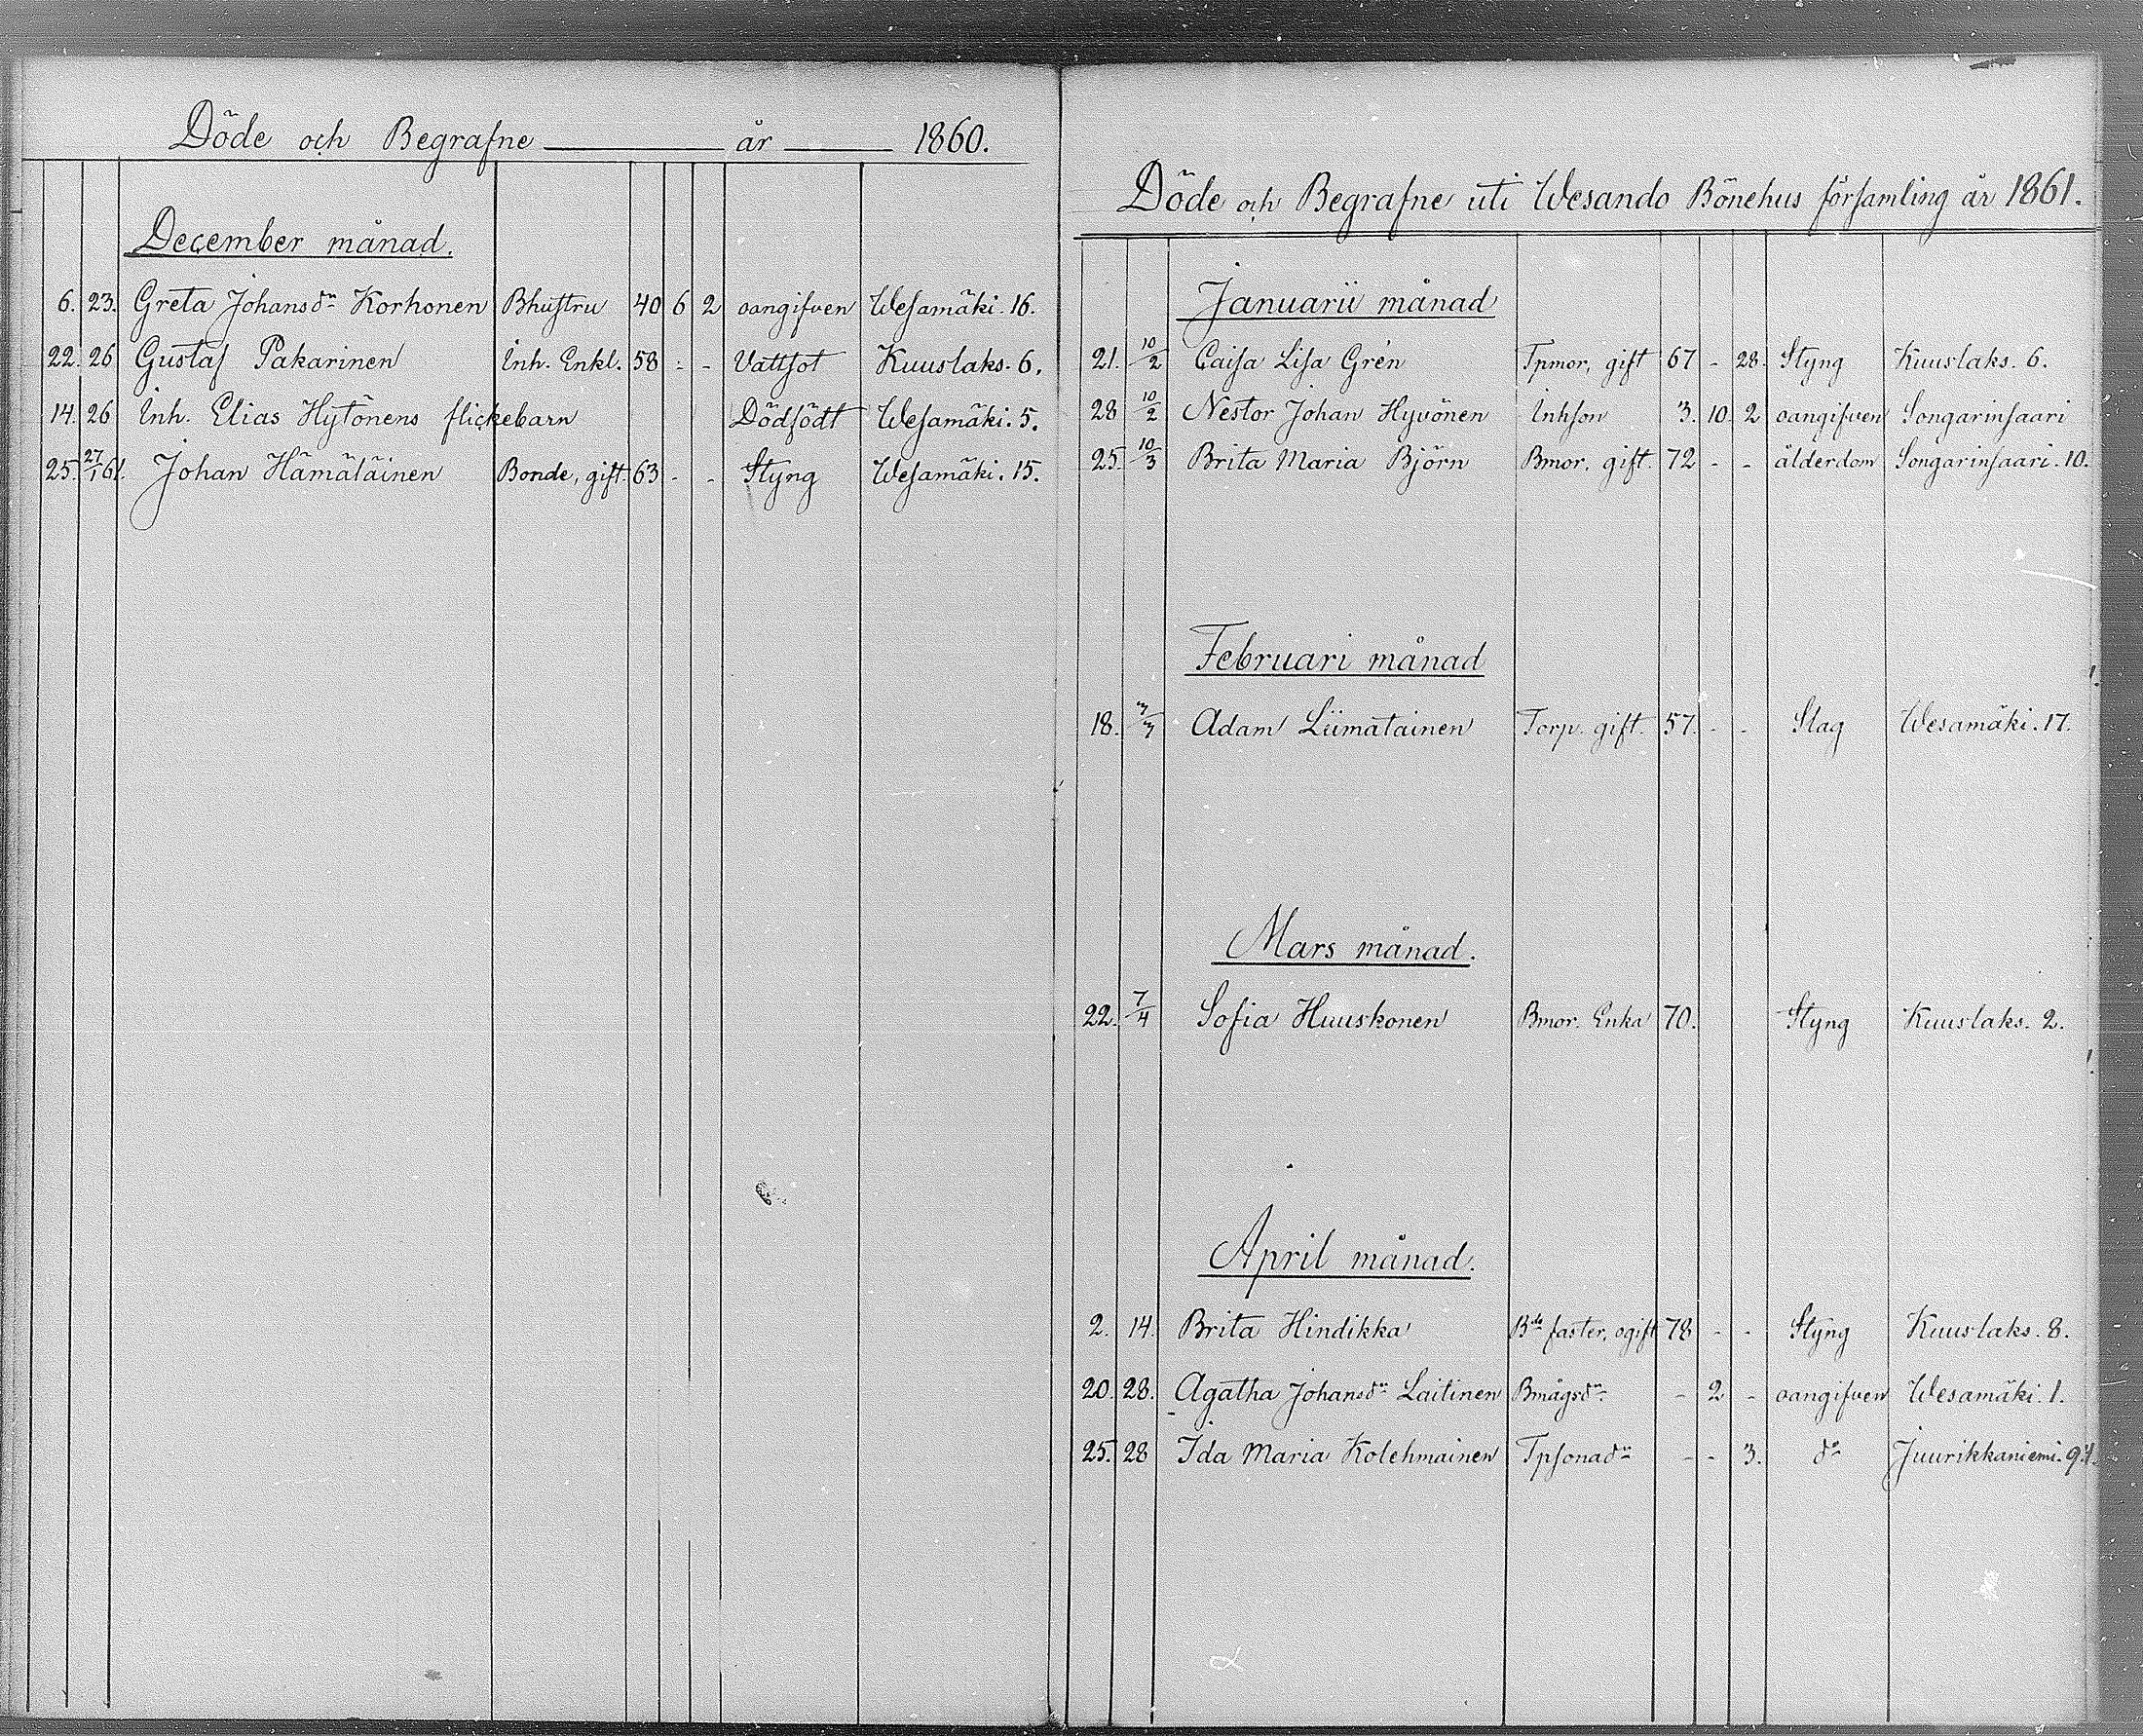 Döde och Begrafne år 1860.
December månad.
6. 23. Greta Johansdr Korhonen Bhustru 40 6 2 oangifven Wesamäki. 16.
22. 26 Gustaf Pakarinen Inh. Enkl. 58 - - Vattsot Kuuslaks. 6.
14. 26 Inh. Elias Hytönens flickebarn Dödfödt Wesamäki. 5.
25. 27/1 61. Johan Hämäläinen Bonde, gift. 63 - - Styng Wesamäki. 15.
Döde och Begrafne uti Wesando Bönehus församling år 1861.
Januarii månad
21. 10/2 Caisa Lisa Grén Tpmor, gift 67 - 28. Styng Kuuslaks. 6.
28 10/2 Nestor Johan Hyvönen Inhson 3. 10. 2 oangifven Songarinsaari
25. 10/3 Brita Maria Björn Bmor. gift. 72 - - ålderdom Songarinsaari. 10.
Februari månad
18. 3/3 Adam Liimatainen Torp. gift. 57. - - Slag Wesamäki. 17.
Mars månad.
22. 7/4 Sofia Huuskonen Bmor. Enka 70. Styng Kuuslaks. 2.
April månad.
2. 14. Brita Hindikka Bds faster, ogift 78 - - Styng Kuuslaks. 8.
20. 28. Agatha Johansdr Laitinen Bmågsdr - 2 - oangifven Wesamäki. 1.
25. 28 Ida Maria Kolehmainen Tpsonadr - - 3. do Juurikkaniemi. 9.